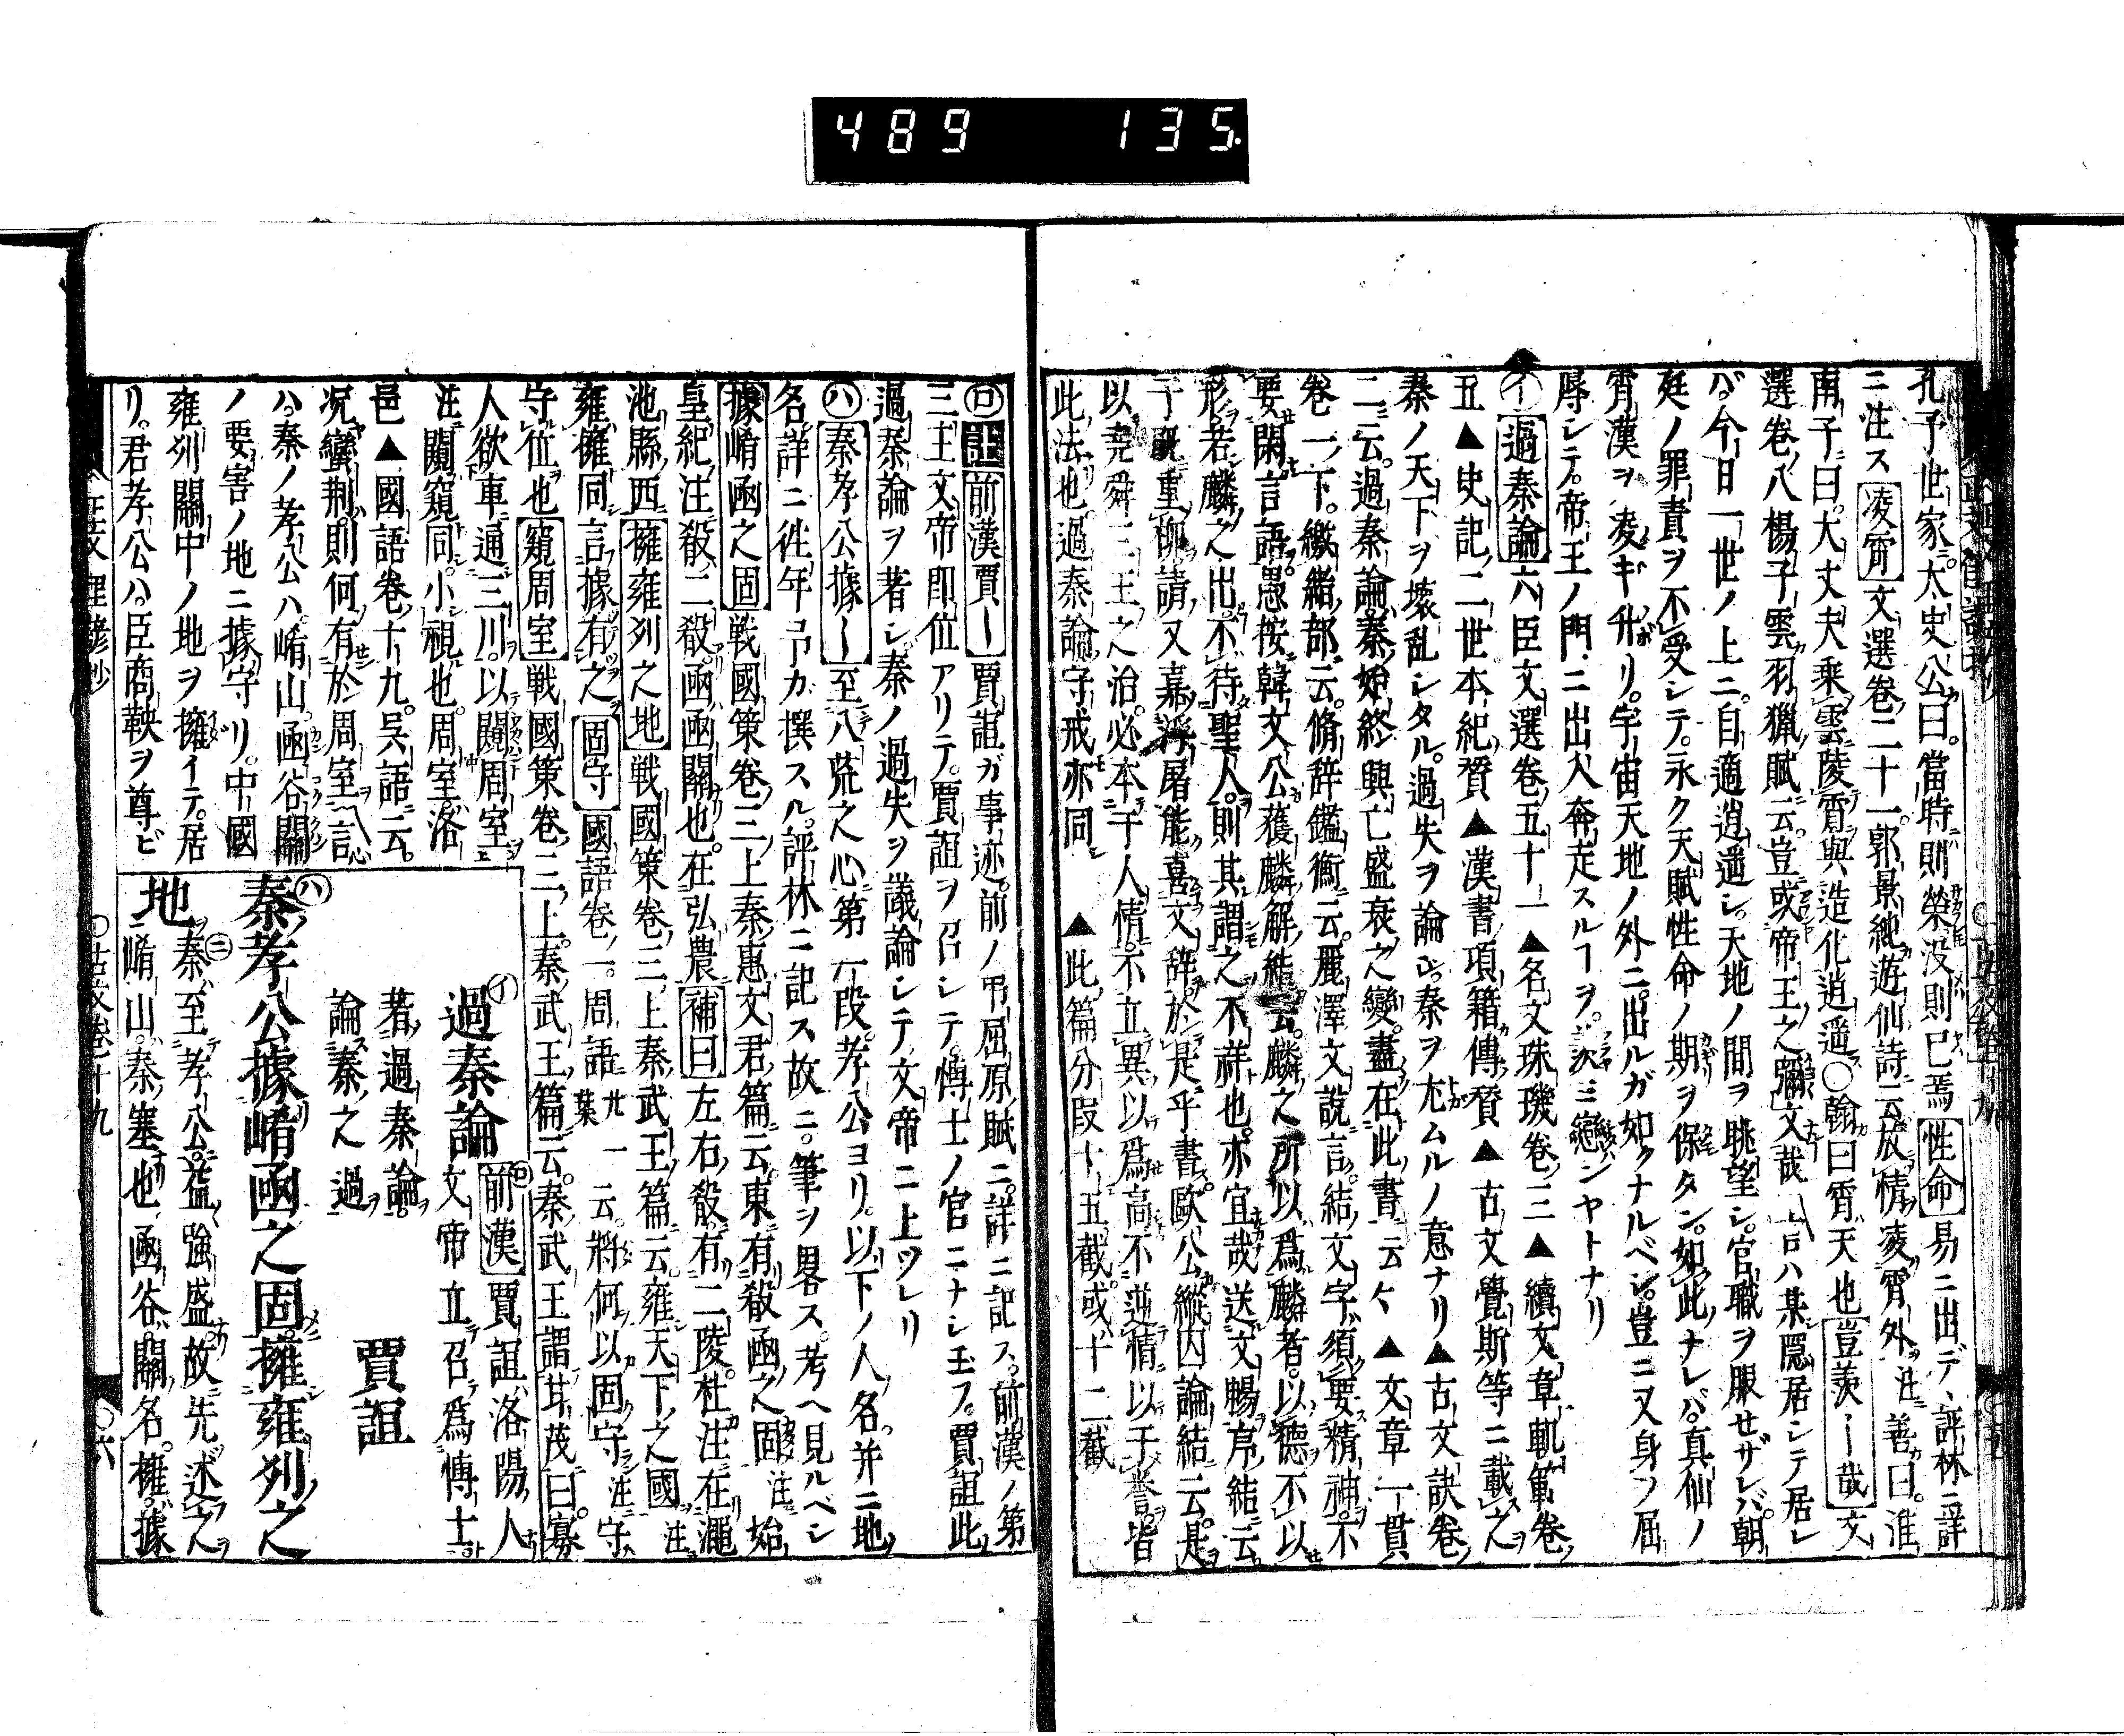 489 135
孔子世家太史公曰。當時則榮没則已焉 性命 易ニ出デ、評林ニ詳
ニ注ス 凌霄 文選卷二十一郭景純遊仙詩云放情凌霄外注善曰。淮
南子曰。大丈夫乘雲陵霄與造化逍遥〇翰曰霄天也 豈羨ー哉 文
選卷八楊子雲羽獵賦云。豈或帝王之彌文哉 言ハ某隠居シテ居レ
バ。今日一世ノ上ニ。自適逍遥シ。天地ノ間ヲ眺望シ。官職ヲ服せザレバ。朝
廷ノ罪責ヲ不受シテ。永ク天賦性命ノ期ヲ保タン。如此ナレバ。真仙ノ
霄漢ヲ凌ギ升リ。宇宙天地ノ外ニ。出ルガ如クナルベシ。豈ニ又身ヲ屈
辱シテ。帝王ノ門ニ出入奔走スルヿヲ。羨ミ戀ンヤトナリ
イ 過秦論 六臣文選卷五十一▲名文珠璣卷三▲續文章軌範卷
五▲史記二世本紀賛▲漢書項籍傳賛▲古文覺斯等ニ載之
秦ノ天下ヲ壊乱シタル。過失ヲ論シ。秦ヲ尤ムルノ意ナリ▲古文訣卷
二云。過秦論秦始終興亡盛衰之變。盡在此書云々▲文章一貫
卷一下。繳結部云。脩辞鑑衡云。麗澤文説言。結文字須要精神。不
要閑言語。愚按韓文公獲麟解結云。麟之所以爲麟者。以德不以
形。若麟之出。不待聖人。則其謂之不祥也。亦宜哉送文暢序結云
予既重柳請又嘉浮屠能喜文辞於是乎書。歐公縦囚論結云。是
以堯舜三王之治。必本于人情。不立異以爲高不逆情以于譽。皆
此法也。過秦論守戒亦同 ▲此篇分段十五截。或十二截
ロ 註 前漢賈ー 賈誼ガ事迹。前ノ弔屈原賦ニ。詳ニ記ス。前漢ノ第
三王文帝即位アリテ。賈誼ヲ召シテ。博士ノ官ニナシ玉フ。賈誼此
過秦論ヲ著シ。秦ノ過失ヲ議論シテ。文帝ニ上ツレリ
ハ 秦孝公據ー 至八荒之心第一段。孝公ヨリ。以下ノ人名。并ニ地
名詳ニ徃年予カ撰スル。評林ニ記ス故ニ。筆ヲ畧ス。考ヘ見ルベシ
據崤函之固 戦國策卷三上秦惠文君篇云。東有殽函之固 注 始
皇紀注殽二殽。函函關也。在弘農 補曰 左右殽有二陵。杜注在澠
池縣西 擁雍列之地 戦國策卷三上秦武王篇云。雍天下之國 注
雍擁同言據有之 固守 國語卷一。周語 廿葉 一云。將何以固守 注 守
守位也 窺周室 戦國策卷三上。秦武王篇云。秦武王謂甘茂曰。寡
人欲車通三川。以闚周室
注闚窺同。小視也。周室洛
邑▲國語卷十九。呉語云。
况蠻荆則何有於周室 言心
ハ。秦ノ孝公ハ。崤山函谷關
ノ要害ノ地ニ據守リ。中國
雍列關中ノ地ヲ擁イテ。居
リ。君孝公ハ。臣商鞅ヲ尊ビ
イ 過秦論 ロ 前漢賈誼洛陽人
文帝立召爲博士
著過秦論。
論秦之過
賈誼
ハ 秦孝公據崤函之固。擁雍列之
地 ニ 秦至孝公。益強盛。故先述之
崤山。秦塞也。函谷關名。擁據
古文卷十九
〇六